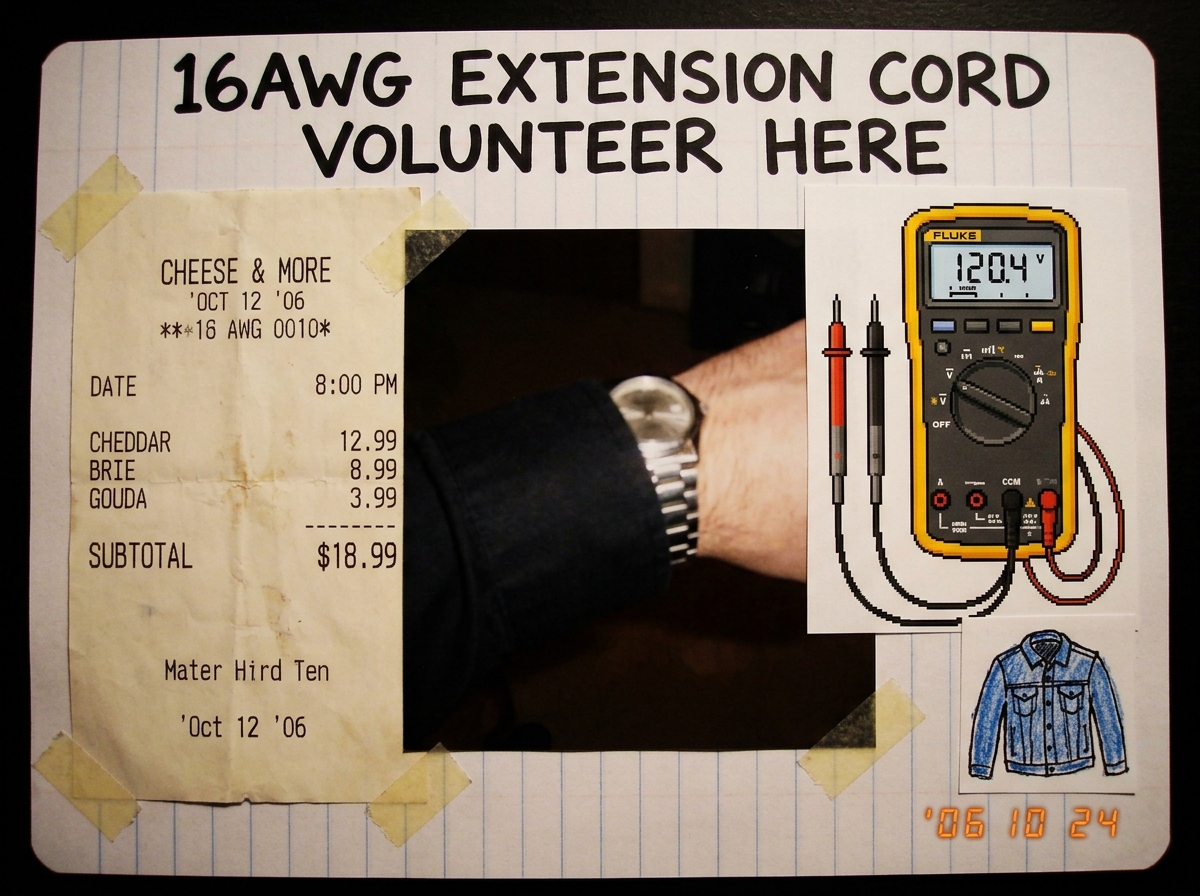 16AWG EXTENSION CORD
VOLUNTEER HERE
CHEESE & MORE
'OCT 12 '06
***16 AWG 0010*
DATE 8:00 PM
CHEDDAR 12.99
BRIE 8.99
GOUDA 3.99
--------
SUBTOTAL $18.99
Mater Hird Ten
'Oct 12 '06
FLUKE
120.4 V
V
V
OFF
A
COM
'06 10 24